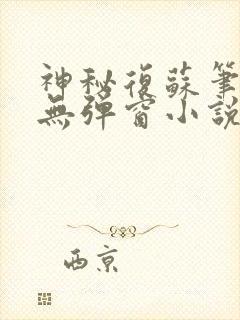 神秘復蘇筆
無彈窗小說
西京